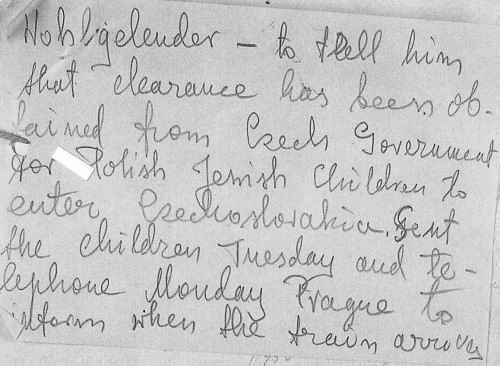 Wohlgelender – to tell him
that clearance has been ob-
tained from Czech Government
for Polish Jewish Children to
enter Czechoslovakia. Sent
the children Tuesday and te-
lephone Monday Prague to
inform when the train arrives